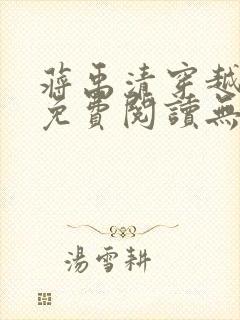 蔣禹清穿越
免費閱讀無
湯雪耕